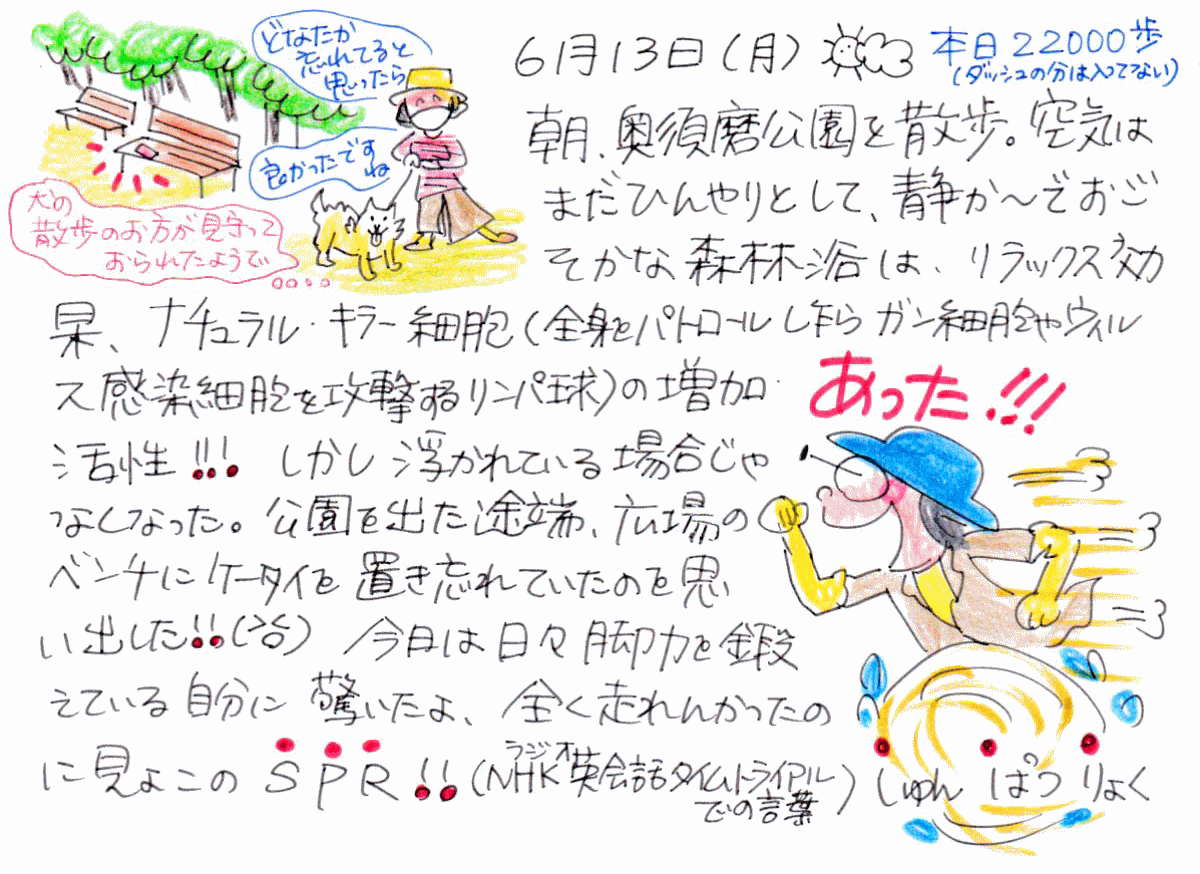 どなたか
忘れてると
思ったら
良かったです
ね
犬の
散歩のお方が見守って
おられたようで
6月13日(月)
本日22000歩
(ダッシュの分は入ってない)
朝、奥須磨公園を散歩。空気は
まだひんやりとして、静か〜でおご
そかな森林浴は、リラックス効
果、ナチュラル・キラー細胞(全身をパトロールし乍らガン細胞やウィル
ス感染細胞を攻撃するリンパ球)の増加
活性!!! しかし浮かれている場合じゃ
なくなった。公園を出た途端、広場の
ベンチにケータイを置き忘れていたのを思
い出した!!(汗) 今日は日々脚力を鍛
えている自分に驚いたよ、全く走れんかったの
に見よこのSPR!!(NHKラジオ英会話タイムトライアル
での言葉)
あった!!!
しゅん ぱつ りょく